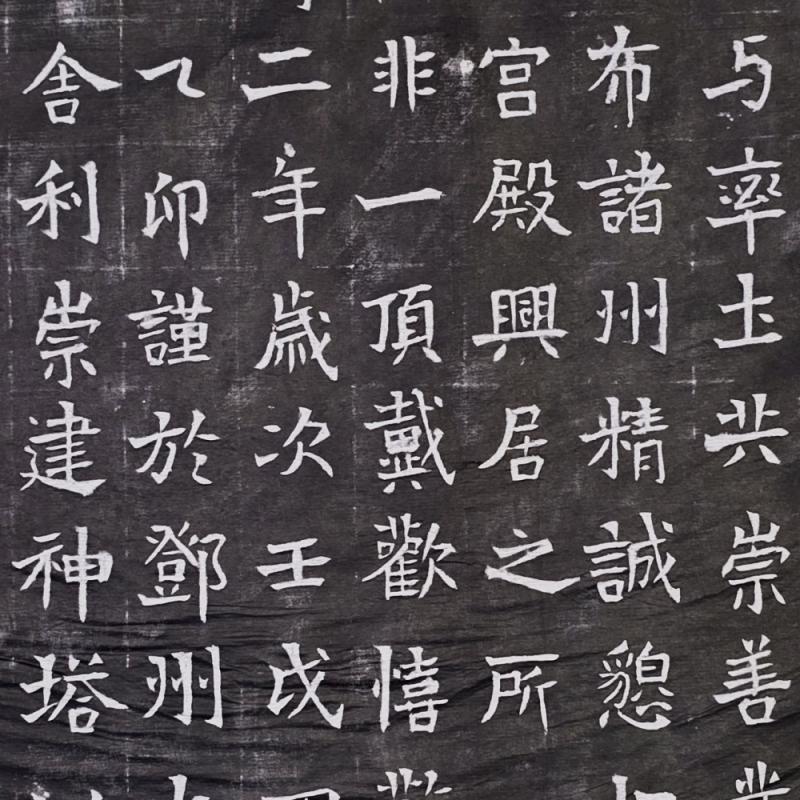 与率土共崇善
布諸州精誠懇
宮殿興居之所
非一頂戴歡憘
二年歲次壬戌
乙卯謹於鄧州
舍利崇建神塔